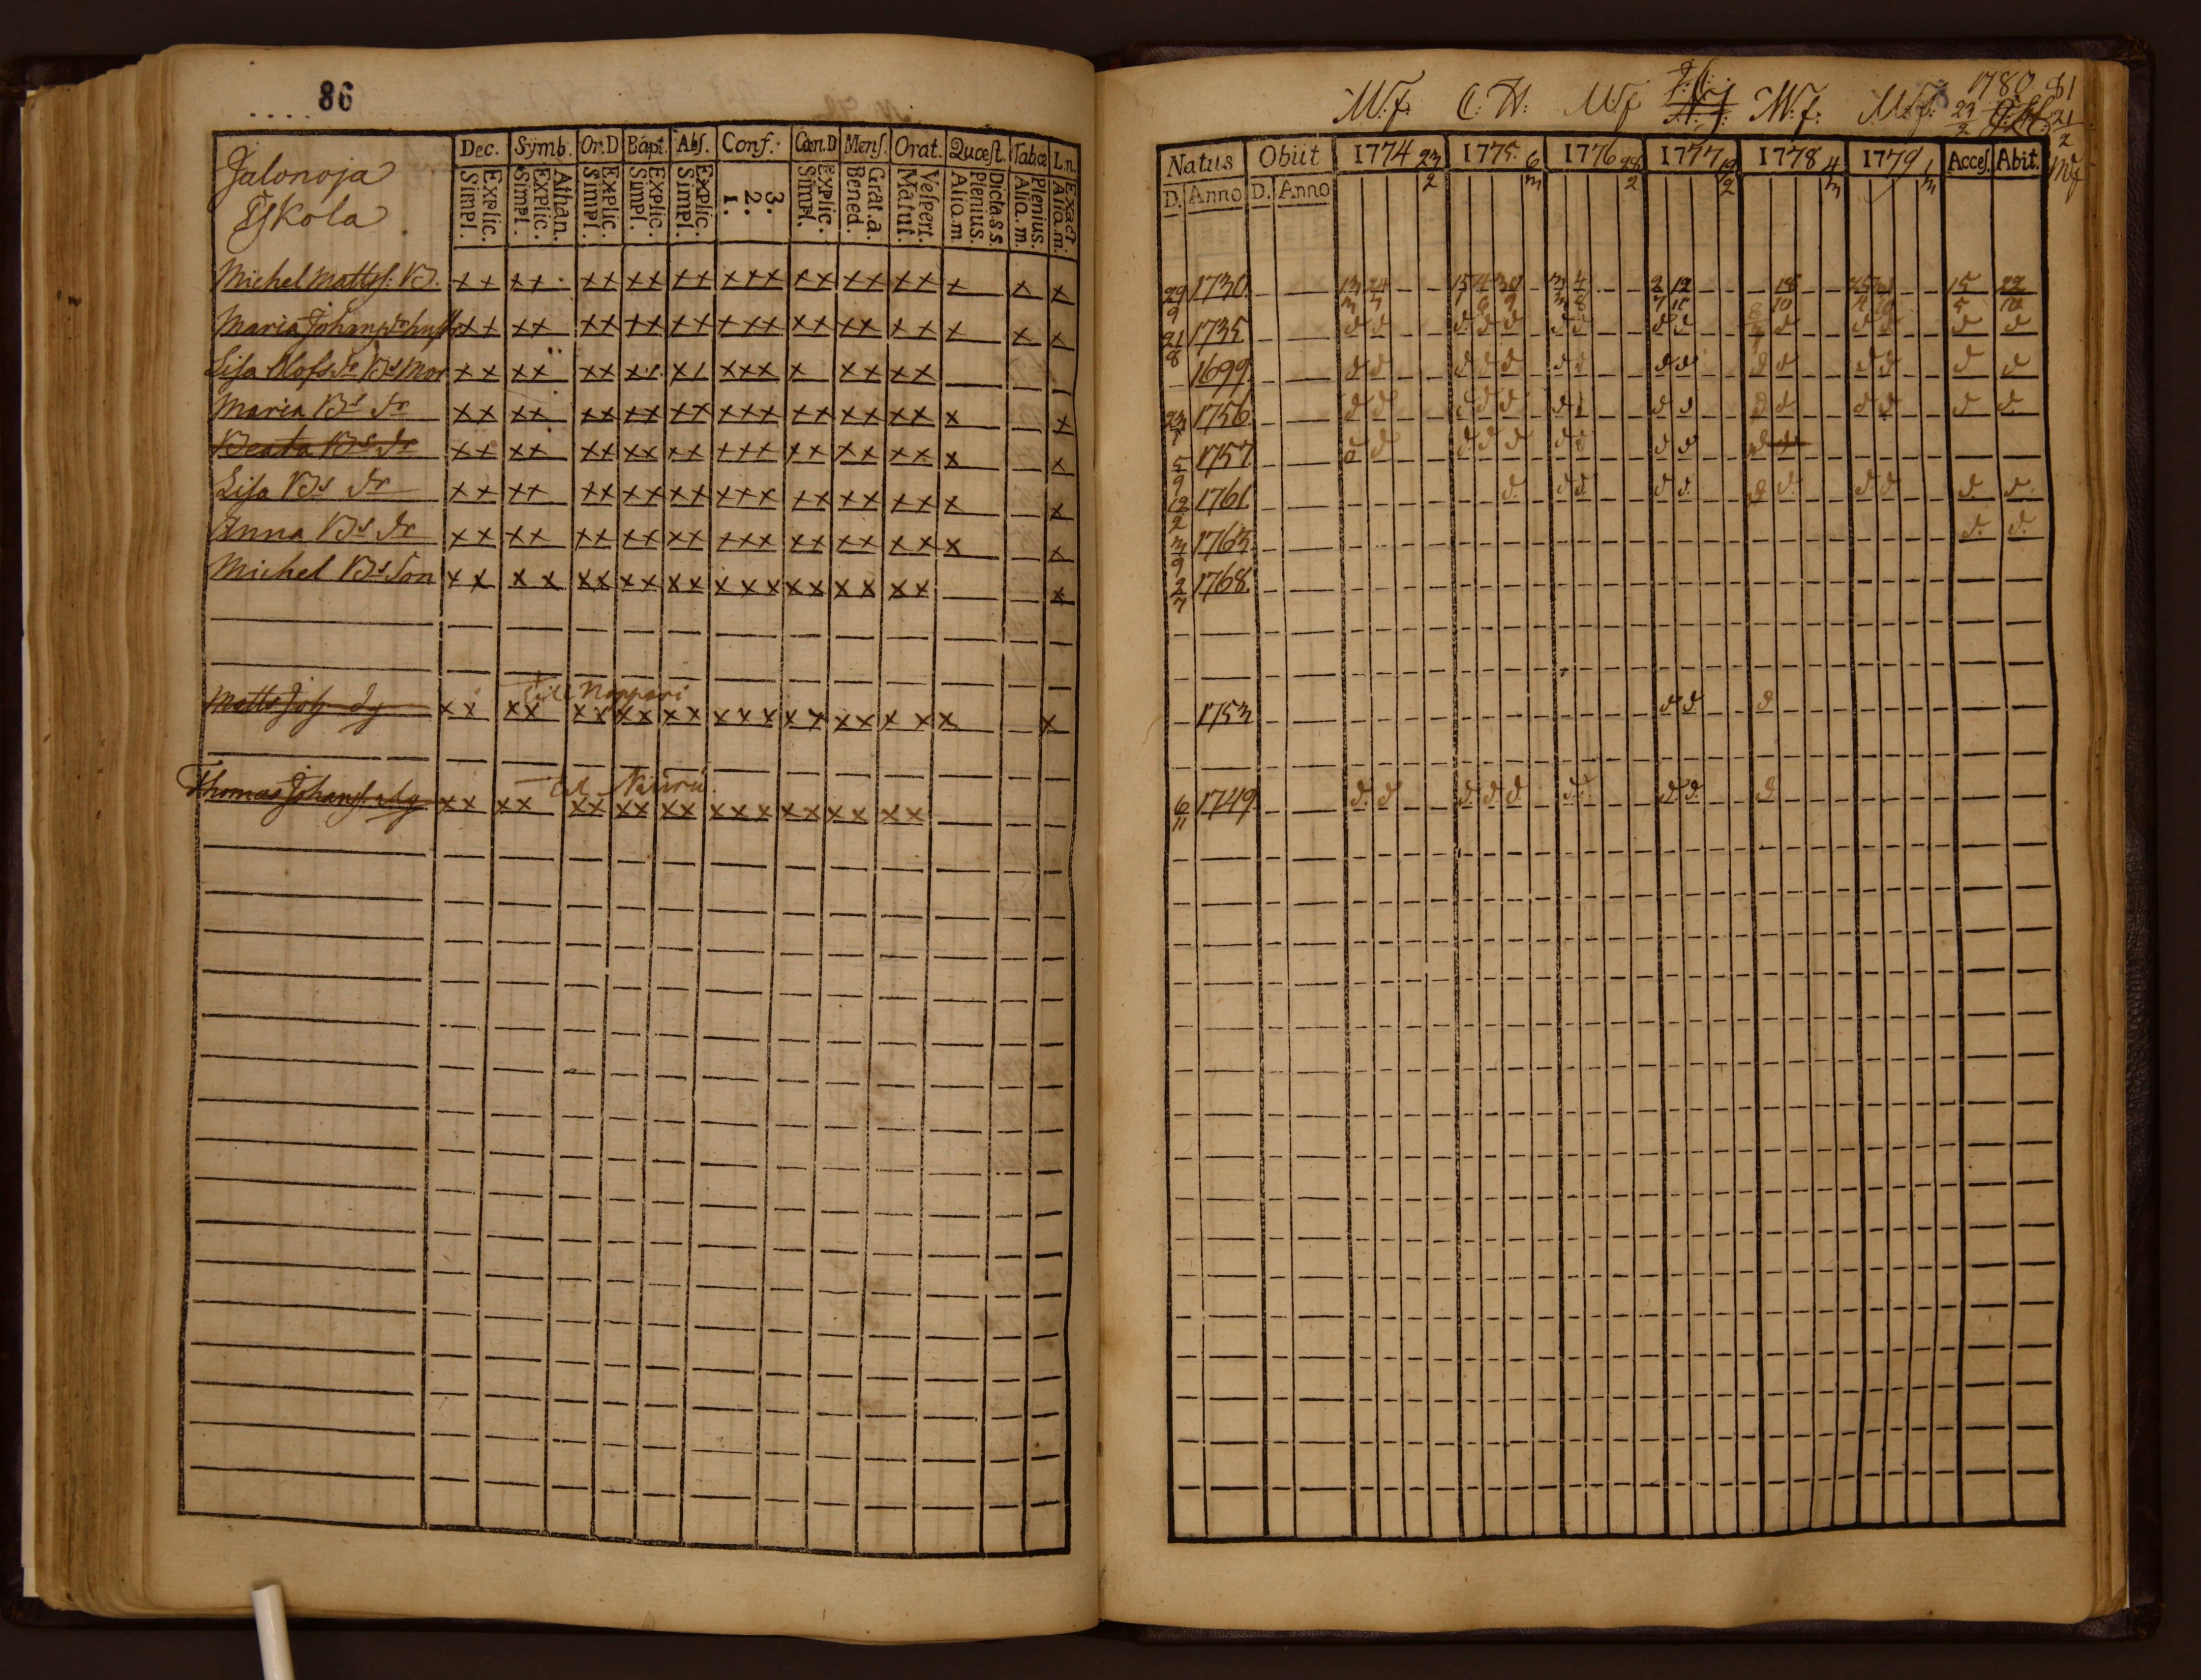 86
Jalonoja
Yskola
Dec. Symb. Or.D Bapt. Abs. Conf. Cœn.D Mens. Orat. Quæst. Tabœ L.n.
Explic. Simpl. Athan. Explic. Simpl. Explic. Simpl. Explic. Simpl. Explic. Simpl. 3. 2. 1. Explic. Simpl. Grat.a. Bened. Vespert. Matut. Dicta.s.s. Plenius. Aliq.m. Plenius. Aliq.m. Exact. Aliq.m.
Michel Matts: B. x x x x x x x x x x x x x x x x x x x x x x
Maria Johans dr hust x x x x x x x x x x x x x x x x x x x x x x
Lisa Olofs dr Bs Mor x x x x x x x x x x x x x x x x x x
Maria Bs dr x x x x x x x x x x x x x x x x x x x x x
Beata Bs dr x x x x x x x x x x x x x x x x x x x x x
Lisa Bs dr x x x x x x x x x x x x x x x x x x x x x
Anna Bs dr x x x x x x x x x x x x x x x x x x x x x
Michel Bs Son x x x x x x x x x x x x x x x x x x x x
till Nappari
Matts Joh dg x x x x x x x x x x x x x x x x x x x x x
Thomas Johans. dg x x x x x x x x x x x x x x x x x x x
M.f. C. H. M.f M.f. M.f. 1780 81
Natus Obiit 1774 23/2 1775. 6/3 1776 28/2 1777 19/2 1778 4/3 1779 1/3 Acces. Abit.
D. Anno D. Anno
29/9 1730. 15/5 22/10
21/8 1735 d d d d d d d d d d d d d d
1699 d d d d d d d d d d d d d d d
23/7 1756. d d d d d d d d d d d d d d d
5/9 1757. d d d d d d d d d
12/2 1761. d. d d. d d. d d. d d. d. d.
3/9 1763. d. d.
2/7 1768.
1753 d d. d
6/11 1749 d. d d. d. d d. d. d. d